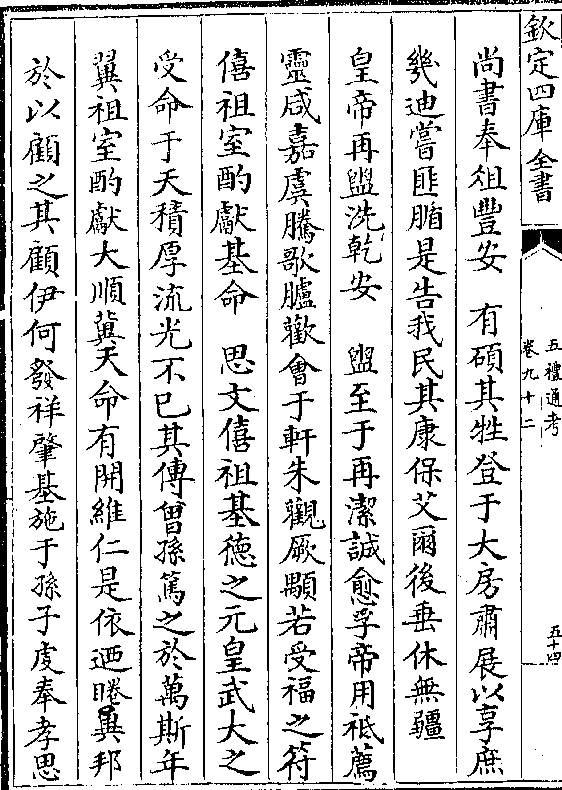 欽定四庫全書
五禮通考
卷九十二
五十四
尚書奉俎豐安　有碩其牲登于大房肅展以享庶
幾迪嘗匪腯是告我民其康保艾爾後垂休無疆
皇帝再盥洗乾安　盥至于再潔誠愈孚帝用祗薦
靈咸嘉虞騰歌臚歡會于軒朱觀厥顒若受福之符
僖祖室酌獻基命　思文僖祖基德之元皇武大之
受命于天積厚流光不已其傳曾孫篤之於萬斯年
翼祖室酌獻大順冀天命有開維仁是依迺睠冀邦
於以顧之其顧伊何發祥肇基施于孫子虔奉孝思